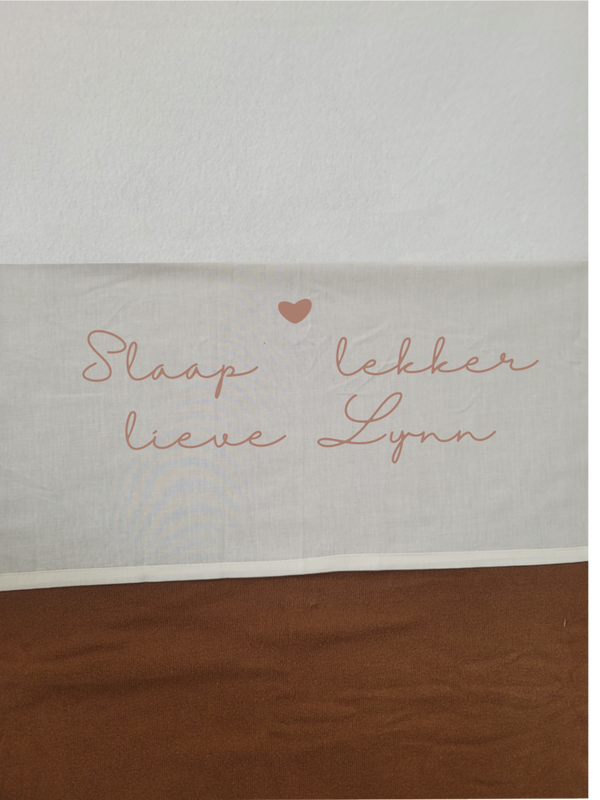 Slaap lekker
lieve Lynn